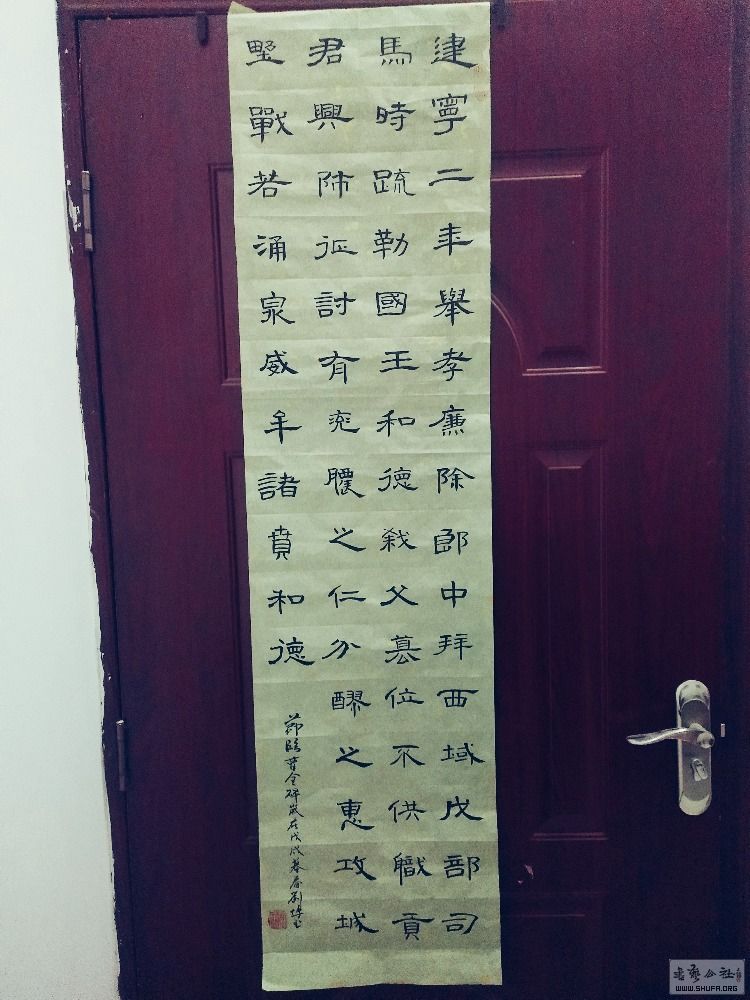 建寧二年舉孝廉除郎中拜西域戊部司
馬時疏勒國王和德弒父篡位不供職貢
君興師征討有兖膿之仁分醪之惠攻城
野戰若涌泉威牟諸賁和德
節臨曹全碑歲在戊戌暮春劉
書藝公社
WWW.SHUFA.ORG